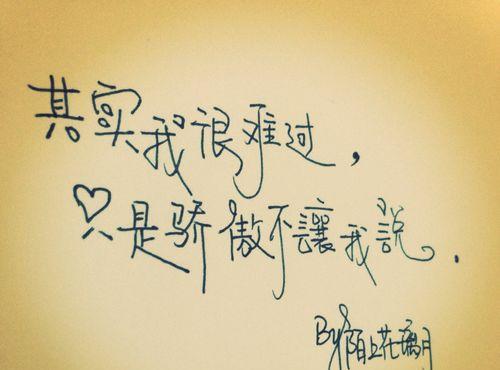 其实我很难过，
只是骄傲不讓我說。
By 陌上花璃月